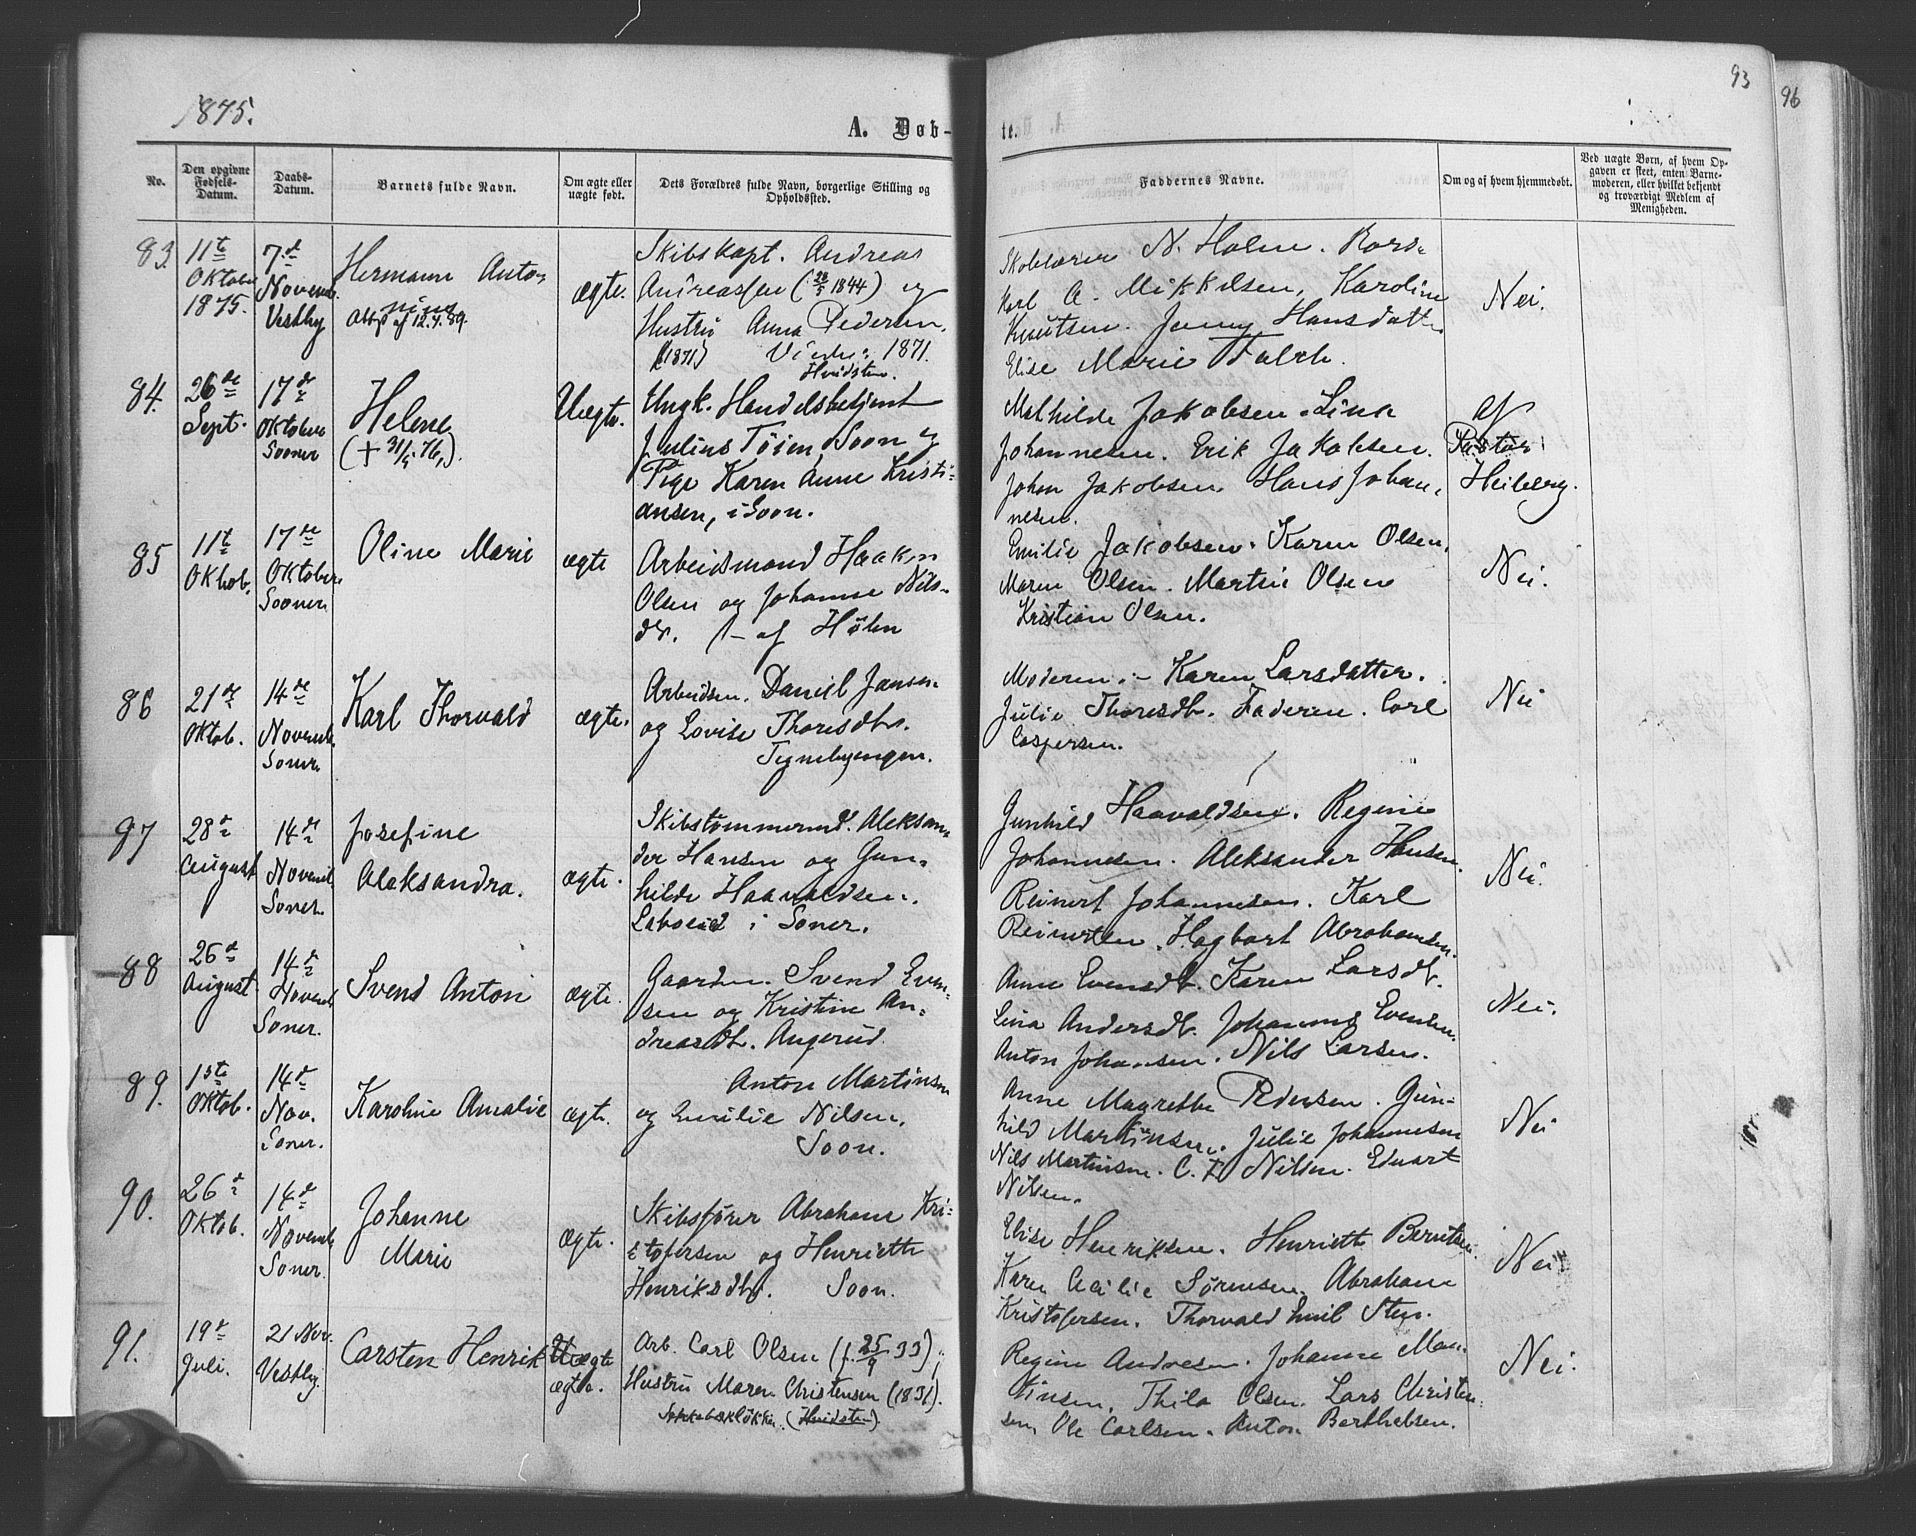 1875.
93
96
A. Døb-
te.
No.
Den opgivne Fødsels-Datum.
Daabs-Datum.
Barnets fulde Navn.
Om ægte eller uægte født.
Dets Forældres fulde Navn, borgerlige Stilling og Opholdssted.
Faddernes Navne.
Om og af hvem hjemmedøbt.
Ved uægte Børn, af hvem Opgaven er skeet, enten Barnemoderen, eller hvilket bekjendt og troværdigt Medlem af Menigheden.
83.
11te
Oktober
1875.
7de
Novemb.
Vestby
Hermann Anto-
nius
af 12.4.89.
ægte.
Skibskapt. Andreas
Andreassen (28/5 1844) og
Hustru Anna Pedersen.
(1871) 1871.
Hvidsten.
Skolelærer N. Holm.
Karl A. Mikkelsen, Karoline
Knutsen. Jenny Hansdatter
Elise Marie Falch.
Nei.
84.
26de
Sept.
17de
Oktober
Sooner
Helene
(+ 31/5 76.)
Uægte.
Ungk. Handelsbetjent
Julius Tøien, Soon og
Pige Karen Anne Kristi-
ansen, i Soon.
Mathilde Jakobsen. Lina
Johannesen. Erik Jakobsen.
Johan Jakobsen. Hans Johan-
nesen.
af
Pastor
Heiberg.
85
11te
Oktob.
17de
Oktober.
Sooner
Oline Marie
ægte
Arbeidsmand Haaken
Olsen og Johanne Nils-
dt. af Hølen
Emilie Jakobsen. Karen Olsen.
Maren Olsen. Martin Olsen
Kristian Olsen.
Nei.
86
21de
Oktob.
14de
Novemb.
Soner.
Karl Thorvald
ægte.
Arbeidsm. Daniel Jansen
og Lovise Thoresdtr.
Tegnebyengen.
Moderen. - Karen Larsdatter.
Julie Thoresdt. Faderen. Carl
Caspersen.
Nei
87
28de
August
14de
Novemb.
Soner.
Josefine
Aleksandra.
ægte.
Skibstømmermd. Aleksan-
der Hansen og Gun-
hilde Haavaldsen.
Labseid i Soner.
Gunhild Haavaldsen. Regine
Johannesen. Aleksander Hansen.
Reinert Johannesen. Karl
Reinertsen. Hagbart Abrahamsen.
Nei.
88
26de
August
14de
Novemb.
Soner.
Svend Anton
ægte.
Gaardm. Svend Even-
sen og Kristine An-
dreasdt. Angerud.
Anne Evensdt. Karen Larsdt.
Lina Andersdt. Johannes Evensen.
Anton Johansen. Nils Larsen.
Nei.
89.
1ste
Oktob.
14de
Nov.
Soner.
Karoline Amalie
ægte.
Anton Martinsen
og Emilie Nilsen.
Soon.
Anne Magrethe Pedersen. Gun-
hild Martinsen. Julie Johannesen
Nils Martinsen. C. F. Nilsen. Edvart
Nilsen.
Nei
90.
26de
Oktob.
14de
Novemb.
Soner.
Johanne
Marie
ægte.
Skibsfører Abraham Kri-
stofersen og Henriette
Henriksdtr. Soon.
Elise Henriksen. Henriette Berntsen.
Karen Cecilie Sørensen. Abraham
Kristofersen. Thorvald Emil Sten.
Nei
91.
19de
Juli.
21 Nov.
Vestby.
Carsten Henrik
Uægte
ægte.
Arb. Carl Olsen (f. 25/9 33),
Hustru Maren Christensen (1831).
(Hvidsten)
Regine Andresen. Johanne Mar-
tinsen. Thila Olsen. Lars Christen-
sen, Ole Carlsen. Anton Berthelsen.
Nei.